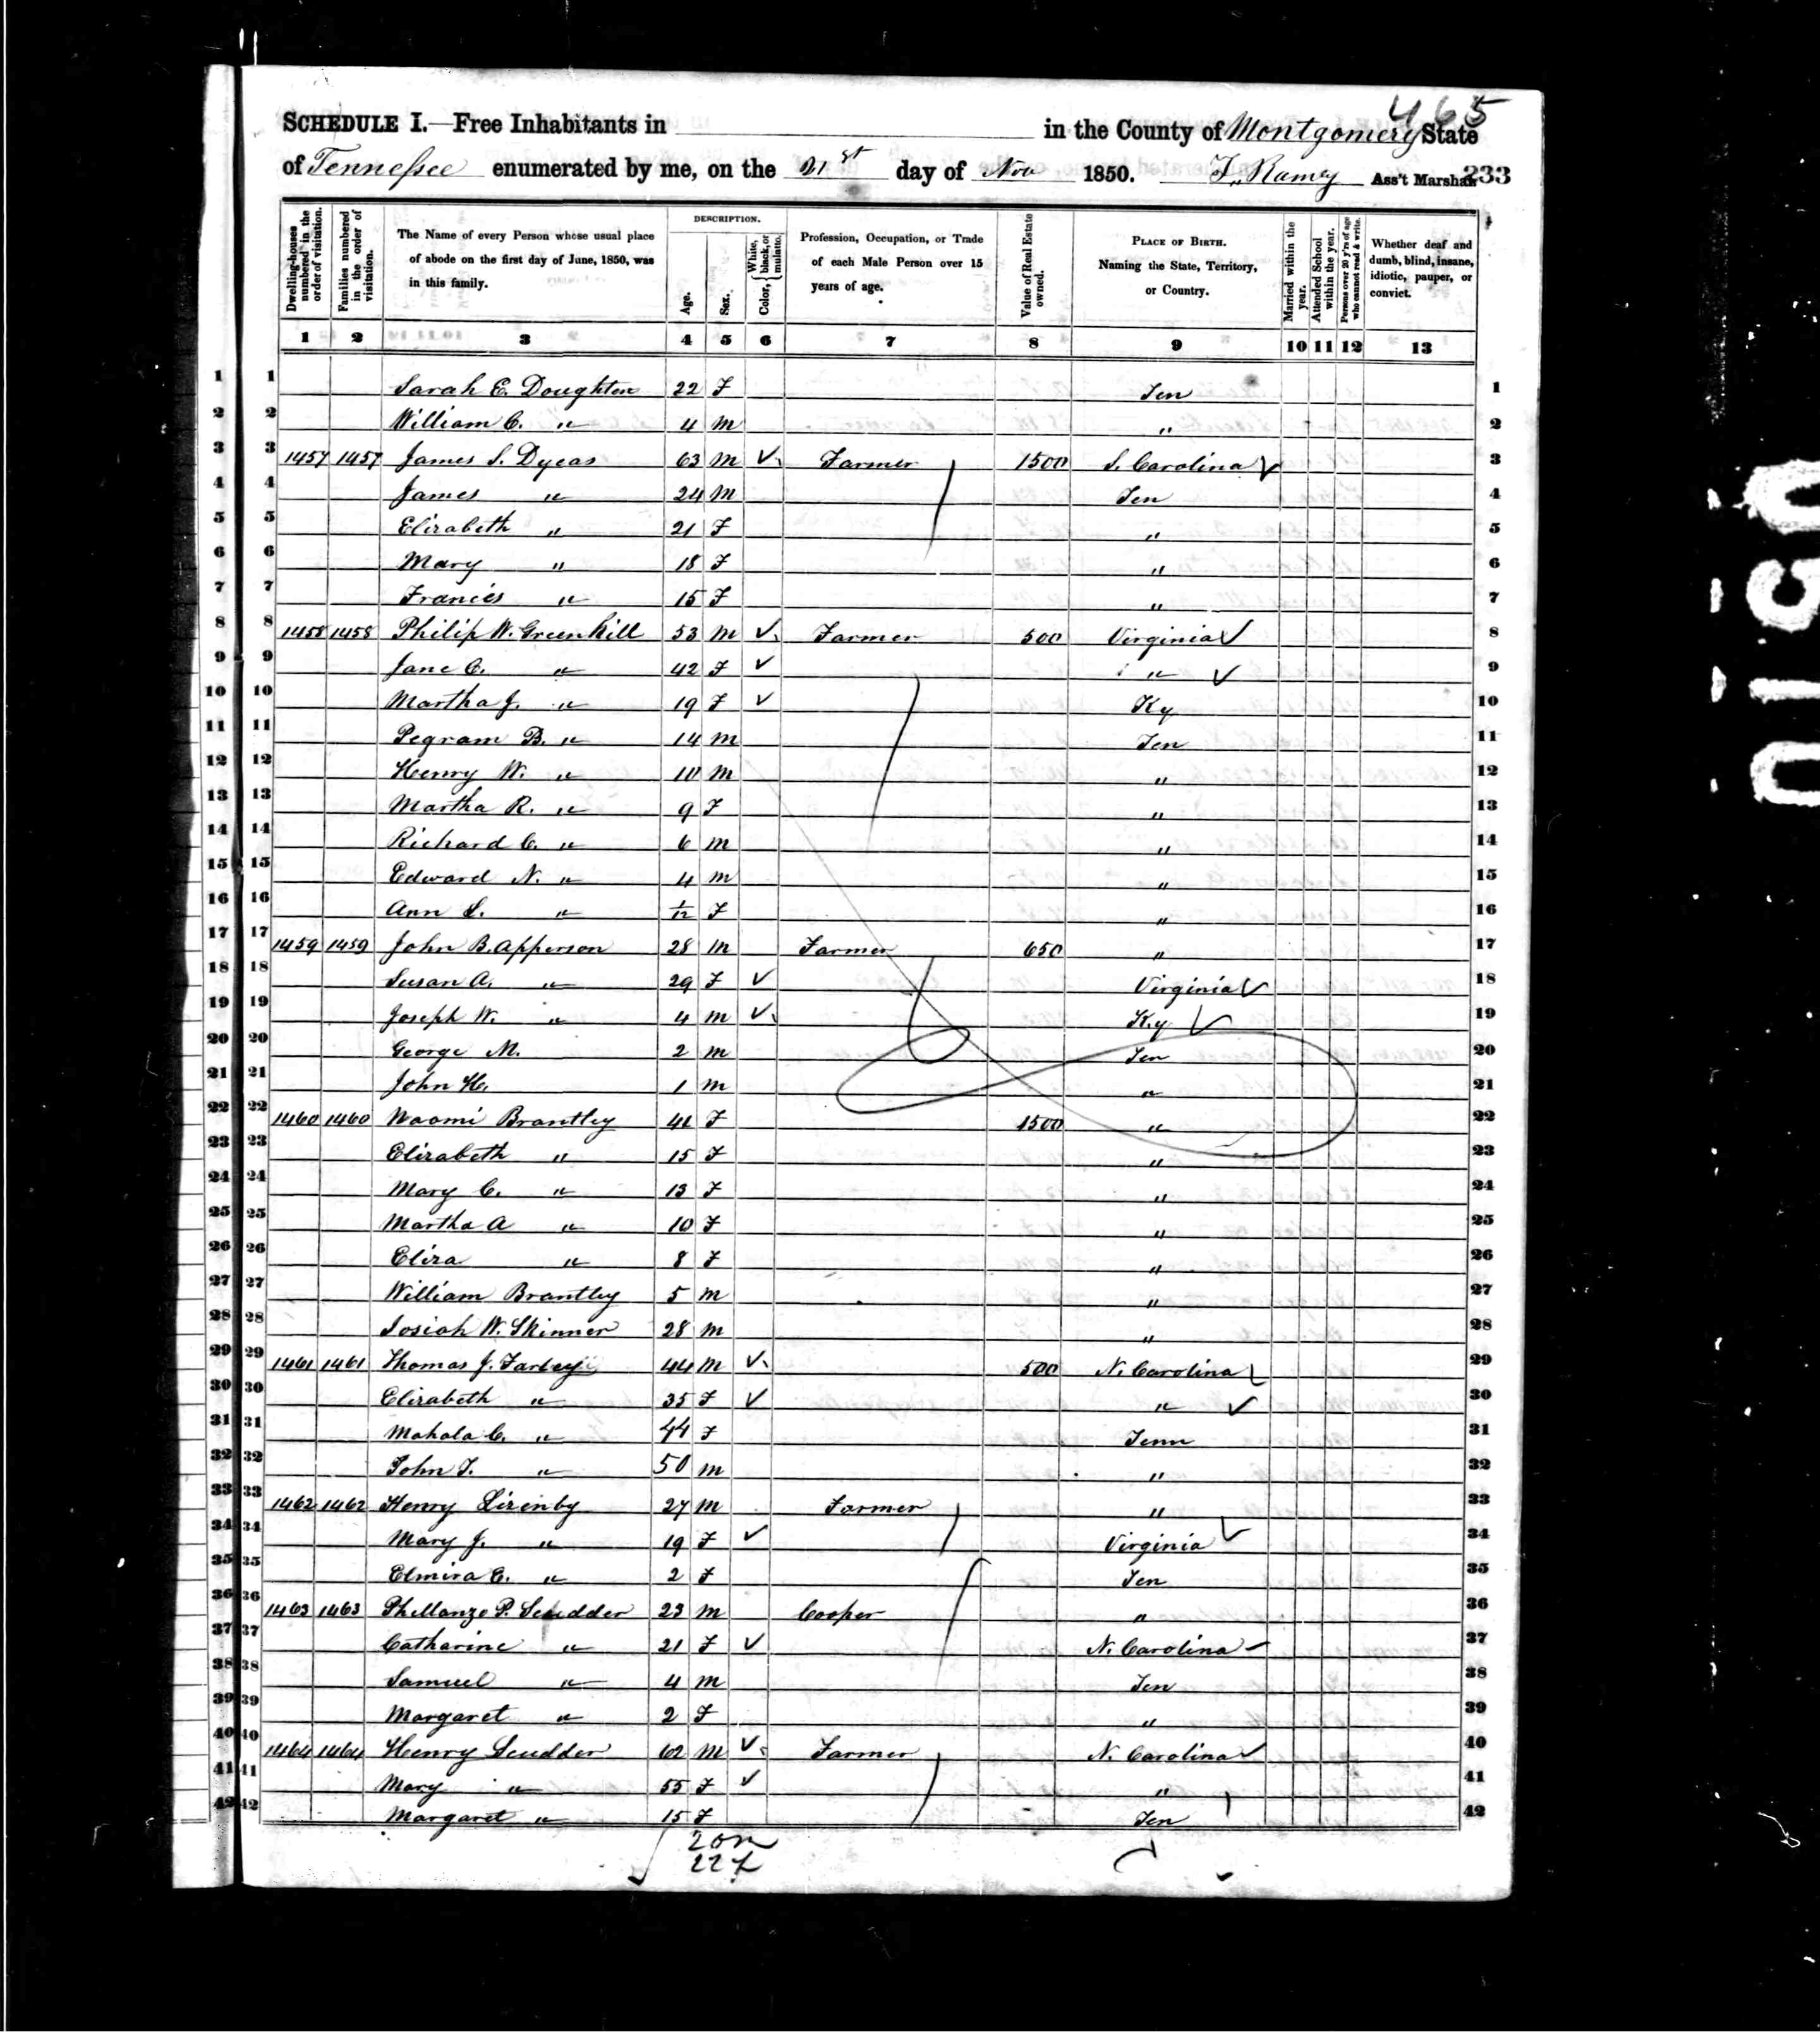 465
SCHEDULE I.—Free Inhabitants in in the County of Montgomery State
of Tennessee enumerated by me, on the 21st day of Nov 1850. T. Ramey Ass't Marshal 233
Dwelling-houses numbered in the order of visitation.
Families numbered in the order of visitation.
The Name of every Person whose usual place of abode on the first day of June, 1850, was in this family.
DESCRIPTION.
Age.
Sex.
Color, { White, black, or mulatto.
Profession, Occupation, or Trade of each Male Person over 15 years of age.
Value of Real Estate owned.
PLACE OF BIRTH. Naming the State, Territory, or Country.
Married within the year.
Attended School within the year.
Persons over 20 y'rs of age who cannot read & write.
Whether deaf and dumb, blind, insane, idiotic, pauper, or convict.
1 2 3 4 5 6 7 8 9 10 11 12 13
1 1 Sarah E. Doughten 22 F Ten 1
2 2 William C. " 4 m " 2
3 3 1457 1457 James S. Dycas 63 m Farmer 1500 S. Carolina 3
4 4 James " 24 m Ten 4
5 5 Elizabeth " 21 F " 5
6 6 Mary " 18 F " 6
7 7 Francis " 15 F " 7
8 8 1458 1458 Philip W. Greenhill 53 m Farmer 500 Virginia 8
9 9 Jane C. " 42 F " 9
10 10 Martha J. " 19 F Ky 10
11 11 Pegram B. " 14 m Ten 11
12 12 Henry W. " 10 m " 12
13 13 Martha R. " 9 F " 13
14 14 Richard C. " 6 m " 14
15 15 Edward N. " 4 m " 15
16 16 Ann S. " 1/12 F " 16
17 17 1459 1459 John B. Apperson 28 m Farmer 650 " 17
18 18 Susan A. " 29 F Virginia 18
19 19 Joseph W. " 4 m Ky 19
20 20 George M. 2 m Ten 20
21 21 John H. 1 m " 21
22 22 1460 1460 Naomi Brantley 41 F 1500 " 22
23 23 Elizabeth " 15 F " 23
24 24 Mary C. " 13 F " 24
25 25 Martha A " 10 F " 25
26 26 Eliza " 8 F " 26
27 27 William Brantley 5 m " 27
28 28 Josiah W. Skinner 28 m " 28
29 29 1461 1461 Thomas J. Farley 44 m 500 N. Carolina 29
30 30 Elizabeth " 35 F " 30
31 31 Mahala C. " 44 F Tenn 31
32 32 John F. " 50 m " 32
33 33 1462 1462 Henry Lizenby 27 m Farmer " 33
34 34 Mary J. " 19 F Virginia 34
35 35 Elmira E. " 2 F Ten 35
36 36 1463 1463 P. Scudder 23 m Cooper " 36
37 37 Catharine " 21 F N. Carolina 37
38 38 Samuel " 4 m Ten 38
39 39 Margaret " 2 F " 39
40 40 1464 1464 Henry Scudder 62 m Farmer N. Carolina 40
41 41 Mary " 55 F " 41
42 42 Margaret " 15 F Ten 42
20 m
22 f